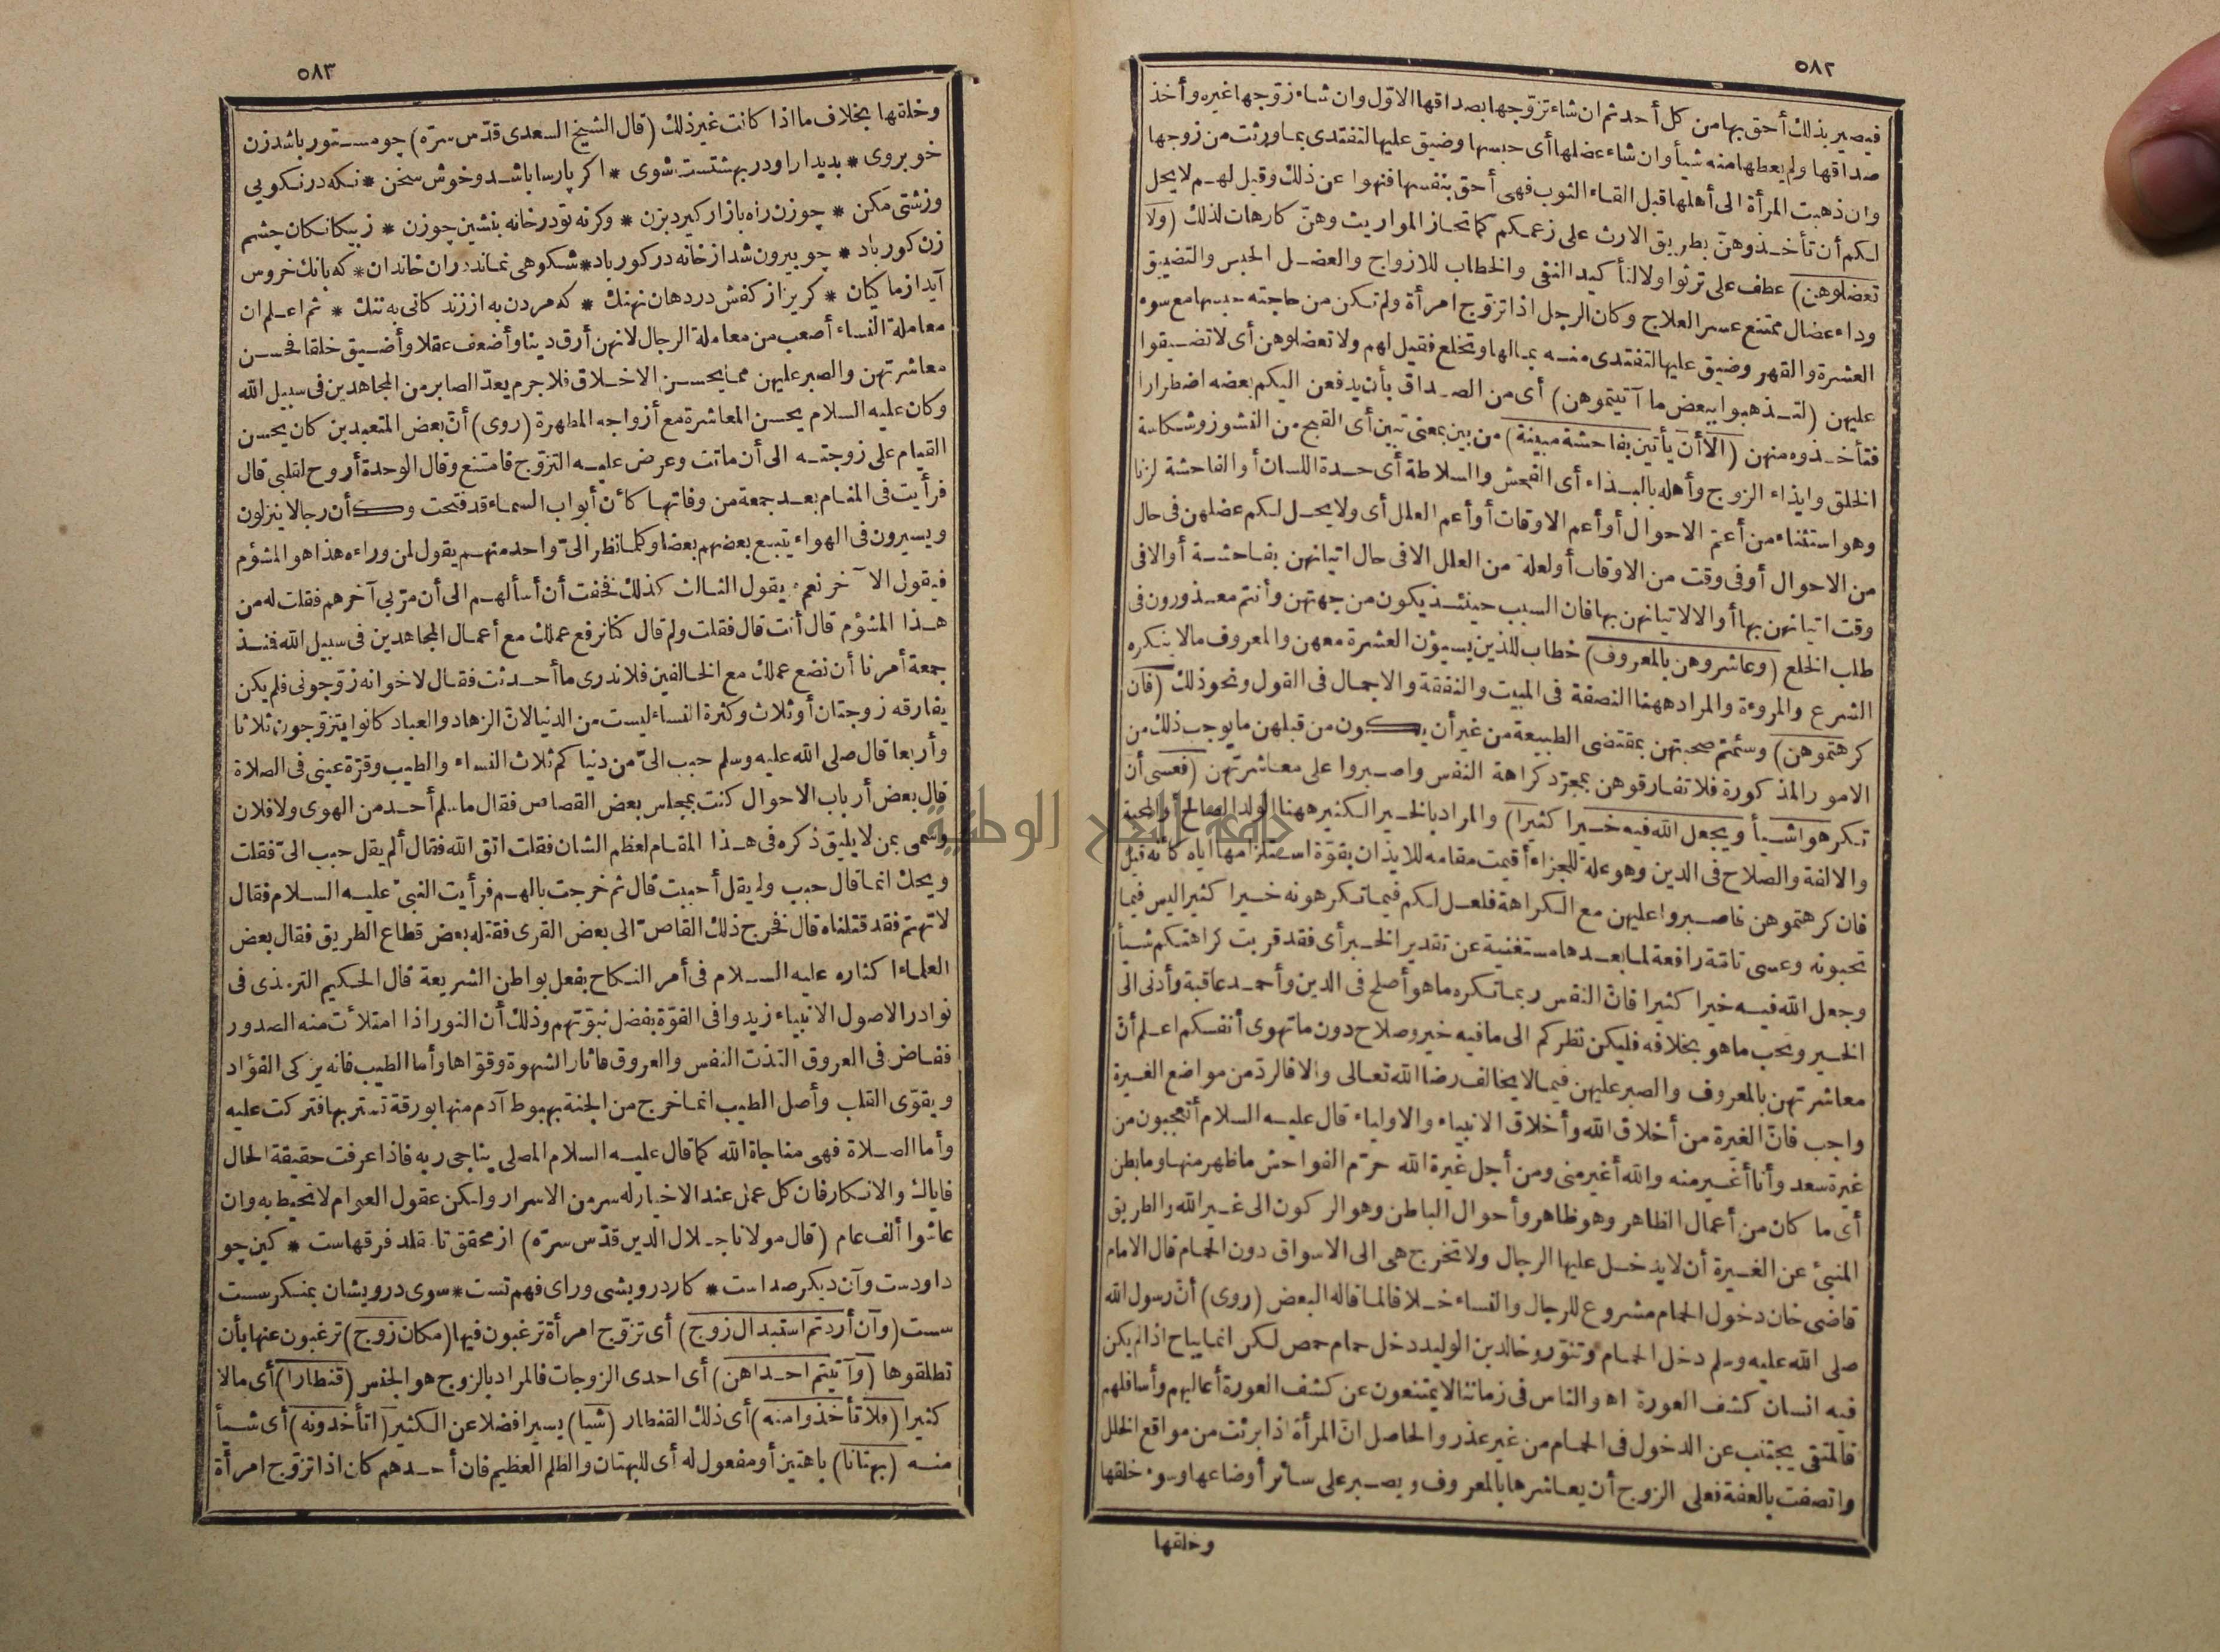 ٥٨٢
فيصير بذلك أحق بها من كل أحد ثم ان شاء تزوّجها بصداقها الاوّل وان شاء زوّجها غيره وأخذ
صداقها ولم يعطها منه شيأ وان شاء عضلها أى حبسها وضيق عليها لتفتدى بما ورثت من زوجها
وان ذهبت المرأة الى أهلها قبل القاء الثوب فهى أحق بنفسها فنهوا عن ذلك وقيل لهم لا يحل
لكم أن تأخذوهنّ بطريق الارث على زعمكم كما تحاز المواريث وهنّ كارهات لذلك (ولا
تعضلوهن) عطف على ترثوا ولا لتأكيد النفى والخطاب للازواج والعضل الحبس والتضييق
وداء عضال ممتنع عسر العلاج وكان الرجل اذا تزوّج امرأة ولم تكن من حاجته حبسها مع سوء
العشرة والقهر وضيق عليها لتفتدى منه بمالها وتختلع فقيل لهم ولا تعضلوهن أى لا تضيقوا
عليهن (لتذهبوا ببعض ما آتيتموهن) أى من الصداق بأن يدفعن اليكم بعضه اضطرارا
فتأخذوه منهن (الا أن يأتين بفاحشة مبينة) من بين بمعنى تبين أى القبح من النشوز وشكاسة
الخلق وايذاء الزوج وأهله بالبذاء أى الفحش والسلاطة أى حدة اللسان أو الفاحشة لزنا
وهو استثناء من أعمّ الاحوال أو أعم الاوقات أو أعم العلل أى ولا يحل لكم عضلهن فى حال
من الاحوال أو فى وقت من الاوقات أو لعلة من العلل الا فى حال اتيانهن بفاحشة أو الا فى
وقت اتيانهن بها أو الا لاتيانهن بها فان السبب حينئذ يكون من جهتهن وأنتم معذورون فى
طلب الخلع (وعاشروهن بالمعروف) خطاب للذين يسيؤن العشرة معهن والمعروف ما لا ينكره
الشرع والمروءة والمراد ههنا النصفة فى المبيت والنفقة والاجمال فى القول ونحو ذلك (فان
كرهتموهن) وسئمتم صحبتهن بمقتضى الطبيعة من غير أن يكون من قبلهن ما يوجب ذلك من
الامور المذكورة فلا تفارقوهن بمجرّد كراهة النفس واصبروا على معاشرتهن (فعسى أن
تكرهوا شيأ ويجعل الله فيه خيرا كثيرا) والمراد بالخير الكثير ههنا الولد الصالح أو المحبة
والالفة والصلاح فى الدين وهو علة للجزاء أقيمت مقامه للايذان بقوّة استلزامها اياه كأنه قيل
فان كرهتموهن فاصبروا عليهن مع الكراهة فلعل لكم فيما تكرهونه خيرا كثيرا ليس فيما
تحبونه وعسى تامّة رافعة لما بعدها مستغنية عن تقدير الخبر أى فقد قربت كراهتكم شيأ
وجعل الله فيه خيرا كثيرا فانّ النفس ربما تكره ما هو أصلح فى الدين وأحمد عاقبة وأدنى الى
الخير وتحب ما هو بخلافه فليكن نظركم الى ما فيه خير وصلاح دون ما تهوى أنفسكم اعلم أنّ
معاشرتهن بالمعروف والصبر عليهن فيما لا يخالف رضا الله تعالى والا فالردّ من مواضع الغيرة
واجب فانّ الغيرة من أخلاق الله وأخلاق الانبياء والاولياء قال عليه السلام أتعجبون من
غيرة سعد وأنا أغير منه والله أغير منى ومن أجل غيرة الله حرّم الفواحش ما ظهر منها وما بطن
أى ما كان من أعمال الظاهر وهو ظاهر وأحوال الباطن وهو الركون الى غير الله والطريق
المنبئ عن الغيرة أن لا يدخل عليها الرجال ولا تخرج هى الى الاسواق دون الحمام قال الامام
قاضى خان دخول الحمام مشروع للرجال والنساء خلافا لما قاله البعض (روى) أنّ رسول الله
صلى الله عليه وسلم دخل الحمام وتنوّر وخالد بن الوليد دخل حمام حمص لكن انما يباح اذا لم يكن
فيه انسان كشف العورة اه والناس فى زماننا لا يمتنعون عن كشف العورة أعاليهم وأسافلهم
فالمتقى يجتنب عن الدخول فى الحمام من غير عذر والحاصل انّ المرأة اذا برئت من مواقع الخلل
واتصفت بالعفة فعلى الزوج أن يعاشرها بالمعروف ويصبر على سائر أوضاعها وسوء خلقها
وخلقها
٥٨٣
وخلقها بخلاف ما اذا كانت غير ذلك (قال الشيخ السعدى قدّس سرّه) چو مستور باشد زن
خوبروى * بديدار او در بهشتست شوى * اكر پارسا باشد وخوش سخن * نكه در نكويى
وزشتى مكن * چو زن راه بازار كيرد بزن * وكرنه تو در خانه بنشين چو زن * ز بيكانكان چشم
زن كور باد * چو بيرون شد از خانه در كور باد * شكوهى نماند در ان خاندان * كه بانك خروس
آيد از ماكيان * كريز از كفش در دهان نهنك * كه مردن به از زندكانى به ننك * ثم اعلم ان
معاملة النساء أصعب من معاملة الرجال لانهن أرق دينا وأضعف عقلا وأضيق خلقا فحسن
معاشرتهن والصبر عليهن مما يحسن الاخلاق فلا جرم يعدّ الصابر من المجاهدين فى سبيل الله
وكان عليه السلام يحسن المعاشرة مع أزواجه المطهرة (روى) أنّ بعض المتعبدين كان يحسن
القيام على زوجته الى أن ماتت وعرض عليه التزوّج فامتنع وقال الوحدة أروح لقلبى قال
فرأيت فى المنام بعد جمعة من وفاتها كأن أبواب السماء قد فتحت وكأن رجالا ينزلون
ويسيرون فى الهواء يتبع بعضهم بعضا وكلما نظر الىّ واحد منهم يقول لمن وراءه هذا هو المشؤم
فيقول الآخر نعم ويقول الثالث كذلك فخفت أن أسألهم الى أن مرّ بى آخرهم فقلت له من
هذا المشؤم قال أنت قال فقلت ولم قال كنا نرفع عملك مع أعمال المجاهدين فى سبيل الله فمنذ
جمعة أمرنا أن نضع عملك مع الخالفين فلا ندرى ما أحدثت فقال لاخوانه زوّجونى فلم يكن
يفارقه زوجتان أو ثلاث وكثرة النساء ليست من الدنيا لانّ الزهاد والعباد كانوا يتزوّجون ثلاثا
وأربعا قال صلى الله عليه وسلم حبب الىّ من دنياكم ثلاث النساء والطيب وقرّة عينى فى الصلاة
قال بعض أرباب الاحوال كنت بمجلس بعض القصاص فقال ما سلم أحد من الهوى ولا فلان
وسمى بمن لا يليق ذكره فى هذا المقام لعظم الشان فقلت اتق الله فقال ألم يقل حبب الىّ فقلت
ويحك انما قال حبب ولم يقل أحببت قال ثم خرجت بالهم فرأيت النبىّ عليه السلام فقال
لا تهتم فقد قتلناه قال فخرج ذلك القاصّ الى بعض القرى فقتله بعض قطاع الطريق فقال بعض
العلماء اكثاره عليه السلام فى أمر النكاح بفعل بواطن الشريعة قال الحكيم الترمذى فى
نوادر الاصول الانبياء زيدوا فى القوّة بفضل نبوّتهم وذلك أن النور اذا امتلأت منه الصدور
ففاض فى العروق التذت النفس والعروق فاثار الشهوة وقوّاها وأما الطيب فانه يزكى الفؤاد
ويقوّى القلب وأصل الطيب انما خرج من الجنة بهبوط آدم منها بورقة تستر بها فتركت عليه
وأما الصلاة فهى مناجاة الله كما قال عليه السلام المصلى يناجى ربه فاذا عرفت حقيقة الحال
فاياك والانكار فان كل عمل عند الاخيار له سر من الاسرار ولكن عقول العوام لا تحيط به وان
عاشوا ألف عام (قال مولانا جلال الدين قدّس سرّه) از محقق تا مقلد فرقهاست * كين چو
داودست وآن ديكر صداست * كار درويشى وراى فهم تست * سوى درويشان بمنكر سست
سست (وان أردتم استبدال زوج) أى تزوّج امرأة ترغبون فيها (مكان زوج) ترغبون عنها بأن
تطلقوها (وآتيتم احداهن) أى احدى الزوجات فالمراد بالزوج هو الجنس (قنطارا) أى مالا
كثيرا (فلا تأخذوا منه) أى ذلك القنطار (شيا) يسيرا فضلا عن الكثير (أتأخذونه) أى شيأ
منه (بهتانا) باهتين أو مفعول له أى للبهتان والظلم العظيم فان أحدهم كان اذا تزوّج امرأة
جامعة النجاح الوطنية